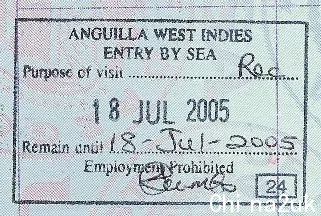 ANGUILLA WEST INDIES
ENTRY BY SEA
Purpose of visit ............ Rec
18 JUL 2005
Remain until 18-Jul-2005
Employment Prohibited
24